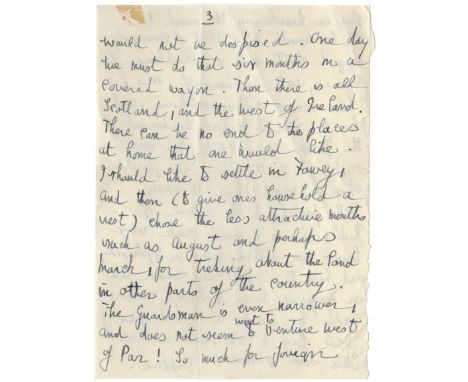 3
would not be despised. One day
we must do that six months in a
covered wagon. Then there is all
Scotland, and the West of Ireland.
There can be no end to the places
at home that one would like.
I should like to settle in Fowey,
and then (to give ones household a
rest) chose the less attractive months
such as August and perhaps
March, for treking about the land
in other parts of the country.
The Guardsman is even narrower,
want to
and does not seem to venture west
of Par! So much for foreign